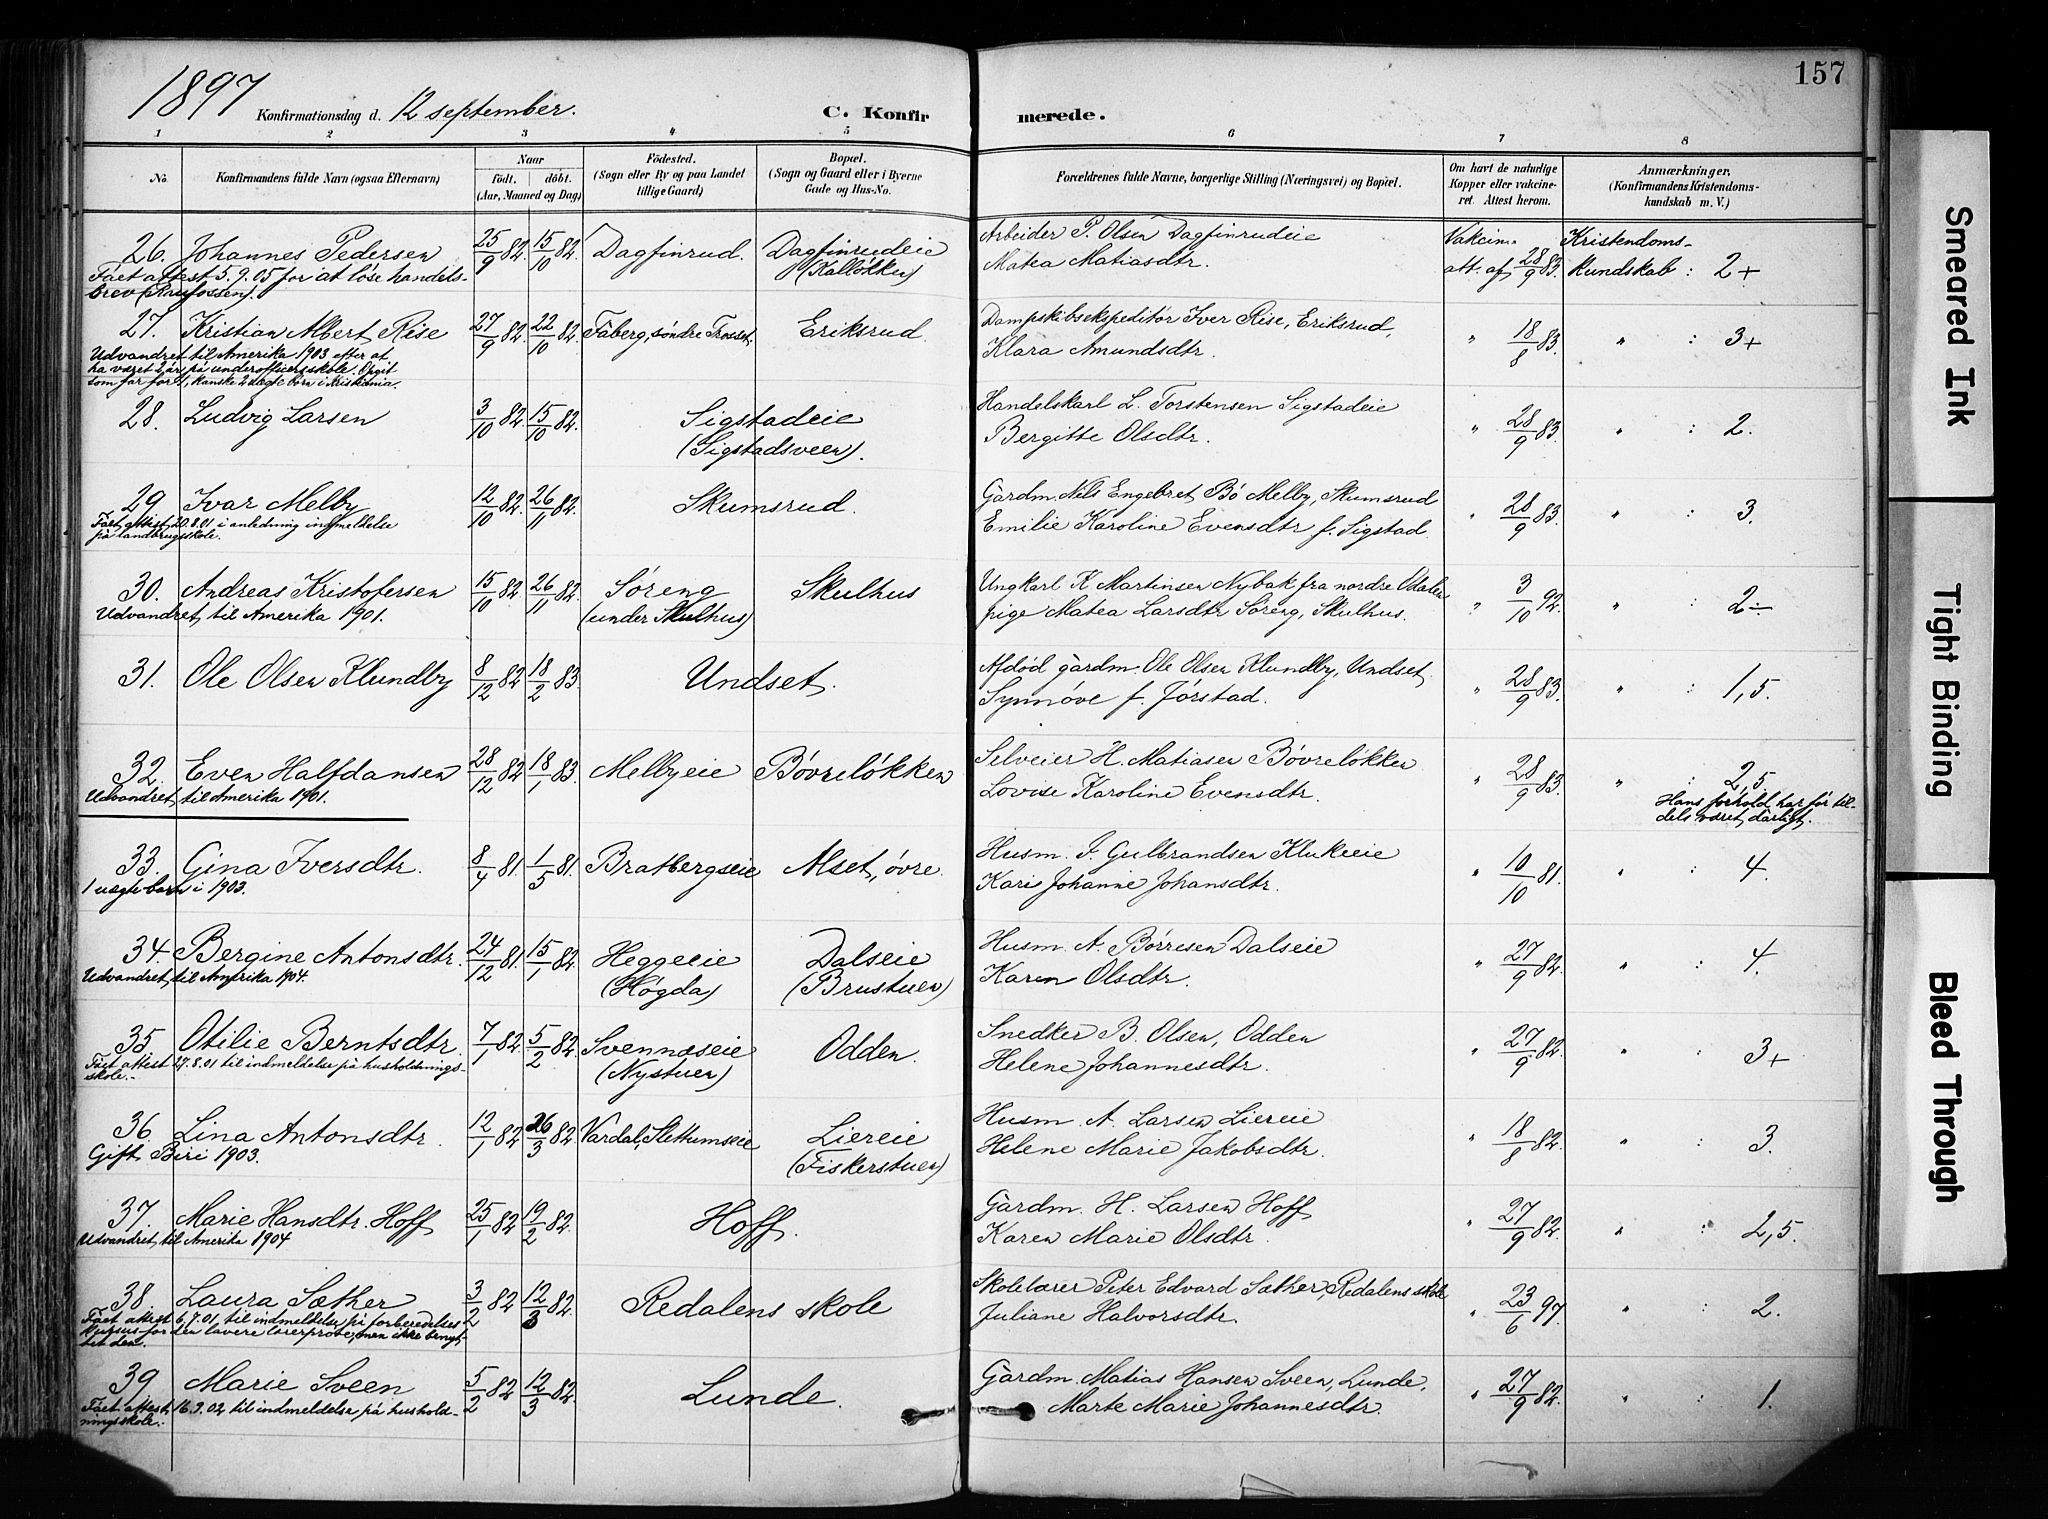 157
1897
Konfirmationsdag d. 12 september.
C. Konfirmerede.
1 2 3 4 5 6 7 8
No. Konfirmandens fulde Navn (ogsaa Efternavn) Naar født. døbt. (Aar, Maaned og Dag) Fødested. (Sogn eller By og paa Landet tillige Gaard) Bopæl. (Sogn og Gaard eller i Byerne Gade og Hus-No. Forældrenes fulde Navne, borgerlige Stilling (Næringsvei) og Bopæl. Om havt de naturlige Kopper eller vakcineret. Attest herom. Anmærkninger. (Konfirmandens Kristendomskundskab m. V.)
26. Johannes Pedersen 25/9 82. 15/10 82. Dagfinrud. Dagfinrudeie (Kalløkken) Arbeider P. Olsen Dagfinrudeie Vakcin. Kristendoms-
Matea Matiasdtr. att. af 28/9 83. kundskab : 2+
Fået attest 5.9.05 for at løse handels-
brev (Raufossen).
27. Kristian Albert Rise 27/9 82. 22/10 82. Fåberg, søndre Troset. Eriksrud. Dampskibsekspeditør Iver Rise, Eriksrud,
Klara Amundsdtr. " 18/8 83. " : 3+
Udvandret til Amerika 1903 efter at
ha været 2 år på underofficersskole. Opgit
som far for 1, kanske 2 uægte børn i Kristiania.
28. Ludvig Larsen 3/10 82. 15/10 82. Sigstadeie (Sigstadsveen). Handelskarl L. Torstensen Sigstadeie
Bergitte Olsdtr. " 28/9 83. " : 2.
29. Ivar Melby 12/10 82. 26/11 82. Skumsrud. Gårdm. Nels Engebret Bø Melby, Skumsrud
Emilie Karoline Evensdtr f. Sigstad. " 28/9 83. " : 3.
Fået attest 20.8.01 i anledning indmeldelse
på landbrugsskole.
30. Andreas Kristofersen 15/10 82. 26/11 82. Søreng (under Skulhus) Skulhus Ungkarl K. Martinsen Nybak fra nordre Odalen
pige Matea Larsdtr Søreng, Skulhus. " 3/10 92. " : 2÷
Udvandret til Amerika 1901.
31. Ole Olsen Klundby 8/12 82 18/2 83. Undset. Afdød gårdm. Ole Olsen Klundby, Undset.
Synnøve f. Jørstad. " 28/9 83. " : 1,5.
32. Even Halfdansen 28/12 82 18/1 83. Melbyeie Bøvreløkken Selveier H. Matiasen Bøvreløkken
Lovise Karoline Evensdtr. " 28/9 83. " : 2,5.
Udvandret til Amerika 1901.
Hans forhold har før til-
dels været dårligt.
33. Gina Iversdtr. 8/4 81. 1/5 81. Bratbergseie Alset, øvre. Husm. I. Gulbrandsen Klukeeie
Kari Johanne Johansdtr. " 10/10 81. " : 4.
1 uægte barn i 1903.
34. Bergine Antonsdtr. 24/12 81. 15/1 82. Heggeeie (Høgda) Dalseie (Brustuen) Husm. A. Børresen Dalseie
Karen Olsdtr. " 27/9 82. " : 4.
Udvandret til Amerika 1904.
35 Otilie Berntsdtr. 7/1 82. 5/2 82. Svennæseie (Nystuen) Odden. Snedker B. Olsen, Odden
Helene Johannesdtr. " 27/9 82. " : 3+
Fået attest 27.8.01 til indmeldelse på husholdnings-
skole.
36. Lina Antonsdtr. 12/1 82 26/3 82. Vardal, Slettumseie Liereie (Fiskerstuen) Husm. A. Larsen Liereie
Helene Marie Jakobsdtr. " 18/8 82. " : 3.
Gift Biri 1903.
37. Marie Hansdtr. Hoff 25/1 82 19/2 82. Hoff. Gårdm. H. Larsen Hoff
Karen Marie Olsdtr. " 27/9 82. " : 2,5.
Udvandret til Amerika 1904
38. Laura Sæther 3/2 82 12/3 82. Redalens skole Skolelærer Peter Edvard Sæther, Redalens skole
Juliane Halvorsdtr. " 23/6 97. " : 2.
Fået attest 6.7.01 til indmeldelse på forberedelses
kursus for den lavere lærerprøve, men ikke benyt-
tet den.
39. Marie Sveen 5/2 82 12/3 82. Lunde. Gårdm. Matias Hansen Sveen, Lunde,
Marte Marie Johannesdtr. " 27/9 82. " : 1.
Fået attest 16.9.02 til indmeldelse på hushold-
ningsskole.
Smeared Ink
Tight Binding
Bleed Through